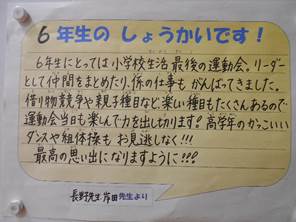 6年生のしょうかいです！
6年生にとっては小学校生活最後の運動会。リーダー
として仲間をまとめたり、係の仕事もがんばってきました。
借り物競争や親子種目など楽しい種目もたくさんあるので
運動会当日も楽しんで力を出しきります！高学年のかっこいい
ダンスや組体操もお見逃しなく！！！
最高の思い出になりますように！！！
先生 岸田先生より